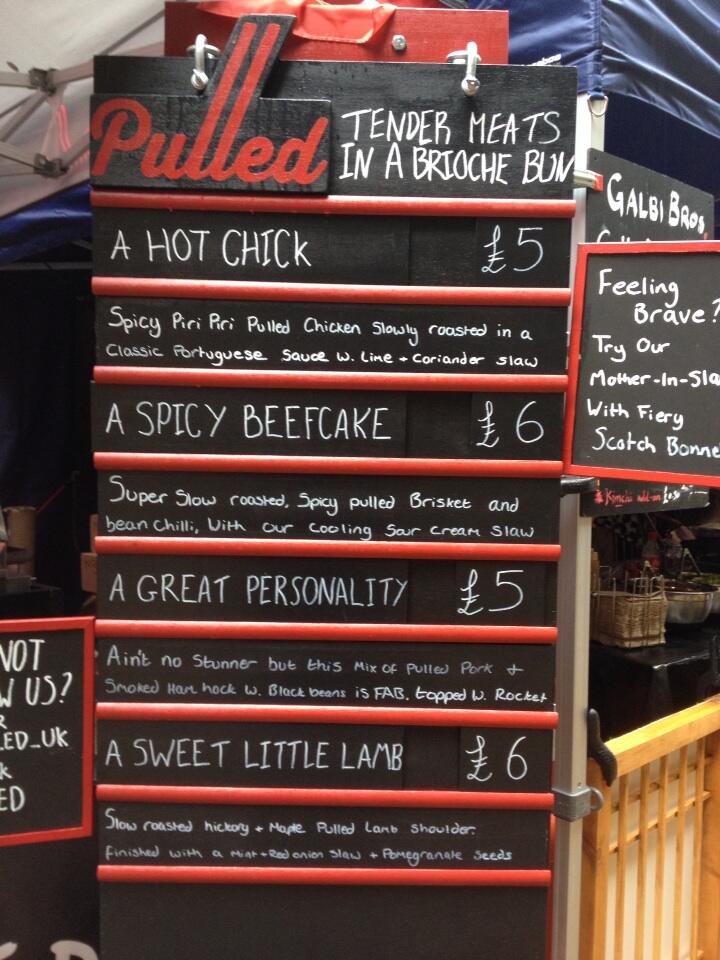 Pulled
TENDER MEATS
IN A BRIOCHE BUN
A HOT CHICK £5
Spicy Piri Piri Pulled Chicken Slowly roasted in a
Classic Portuguese Sauce w. Lime + Coriander slaw
A SPICY BEEFCAKE £6
Super Slow roasted, Spicy pulled Brisket and
bean chilli, With our Cooling Sour Cream Slaw
A GREAT PERSONALITY £5
Ain't no Stunner but this Mix of Pulled Pork +
Smoked Ham hock w. Black beans is FAB. topped w. Rocket
A SWEET LITTLE LAMB £6
Slow roasted hickory + Maple Pulled Lamb Shoulder.
finished with a Mint + Red onion Slaw + Pomegranate Seeds
GALBI BROS
Feeling
Brave?
Try Our
Mother-In-Sla
With Fiery
Scotch Bonne
Kimchi add-on
NOT
W US?
R
LED_UK
K
ED